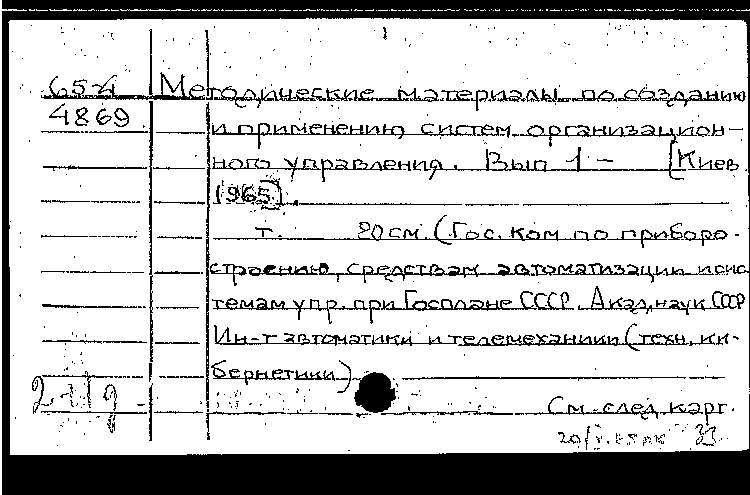 65-4 Методические материалы по созданию
4869
и применению систем организацион-
ного управления. Вып 1 - [Киев
1965].
т. 20см. (Гос. Ком по приборо-
строению, средствам автоматизации и сис
темам упр. при Госплане СССР. Акад. наук СССР
Ин-т автоматики и телемеханики (техн. ки-
бернетики)
См. след карт.
33